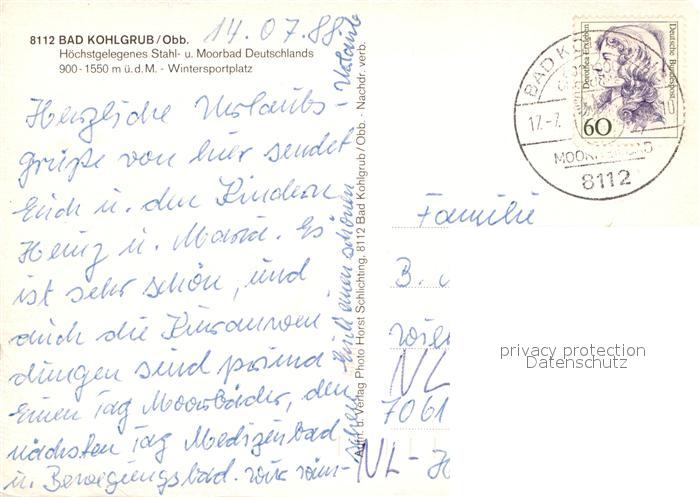 8112 BAD KOHLGRUB/Obb.
Höchstgelegenes Stahl- u. Moorbad Deutschlands
900 - 1550 m ü.d.M. - Wintersportplatz
14.07.88
Herzliche Urlaubs-
grüße von hier sendet
Euch u. den Kindern
Heinz u. Maria. Es
ist sehr schön, und
auch die Kuranwen-
dungen sind prima
Einen Tag Moorbäder, den
nächsten Tag Medizinbad
u. Bewegungsbad. Wir wün-
schen Euch einen schönen
Urlaub
Aufn. u. Verlag Photo Horst Schlichting, 8112 Bad Kohlgrub/Obb. - Nachdr. verb.
Dorothea Erxleben
Deutsche Bundespost
60
BAD K
17.-7.
MOOR
8112
Familie
B.
NL
7061
NL-
privacy protection
Datenschutz